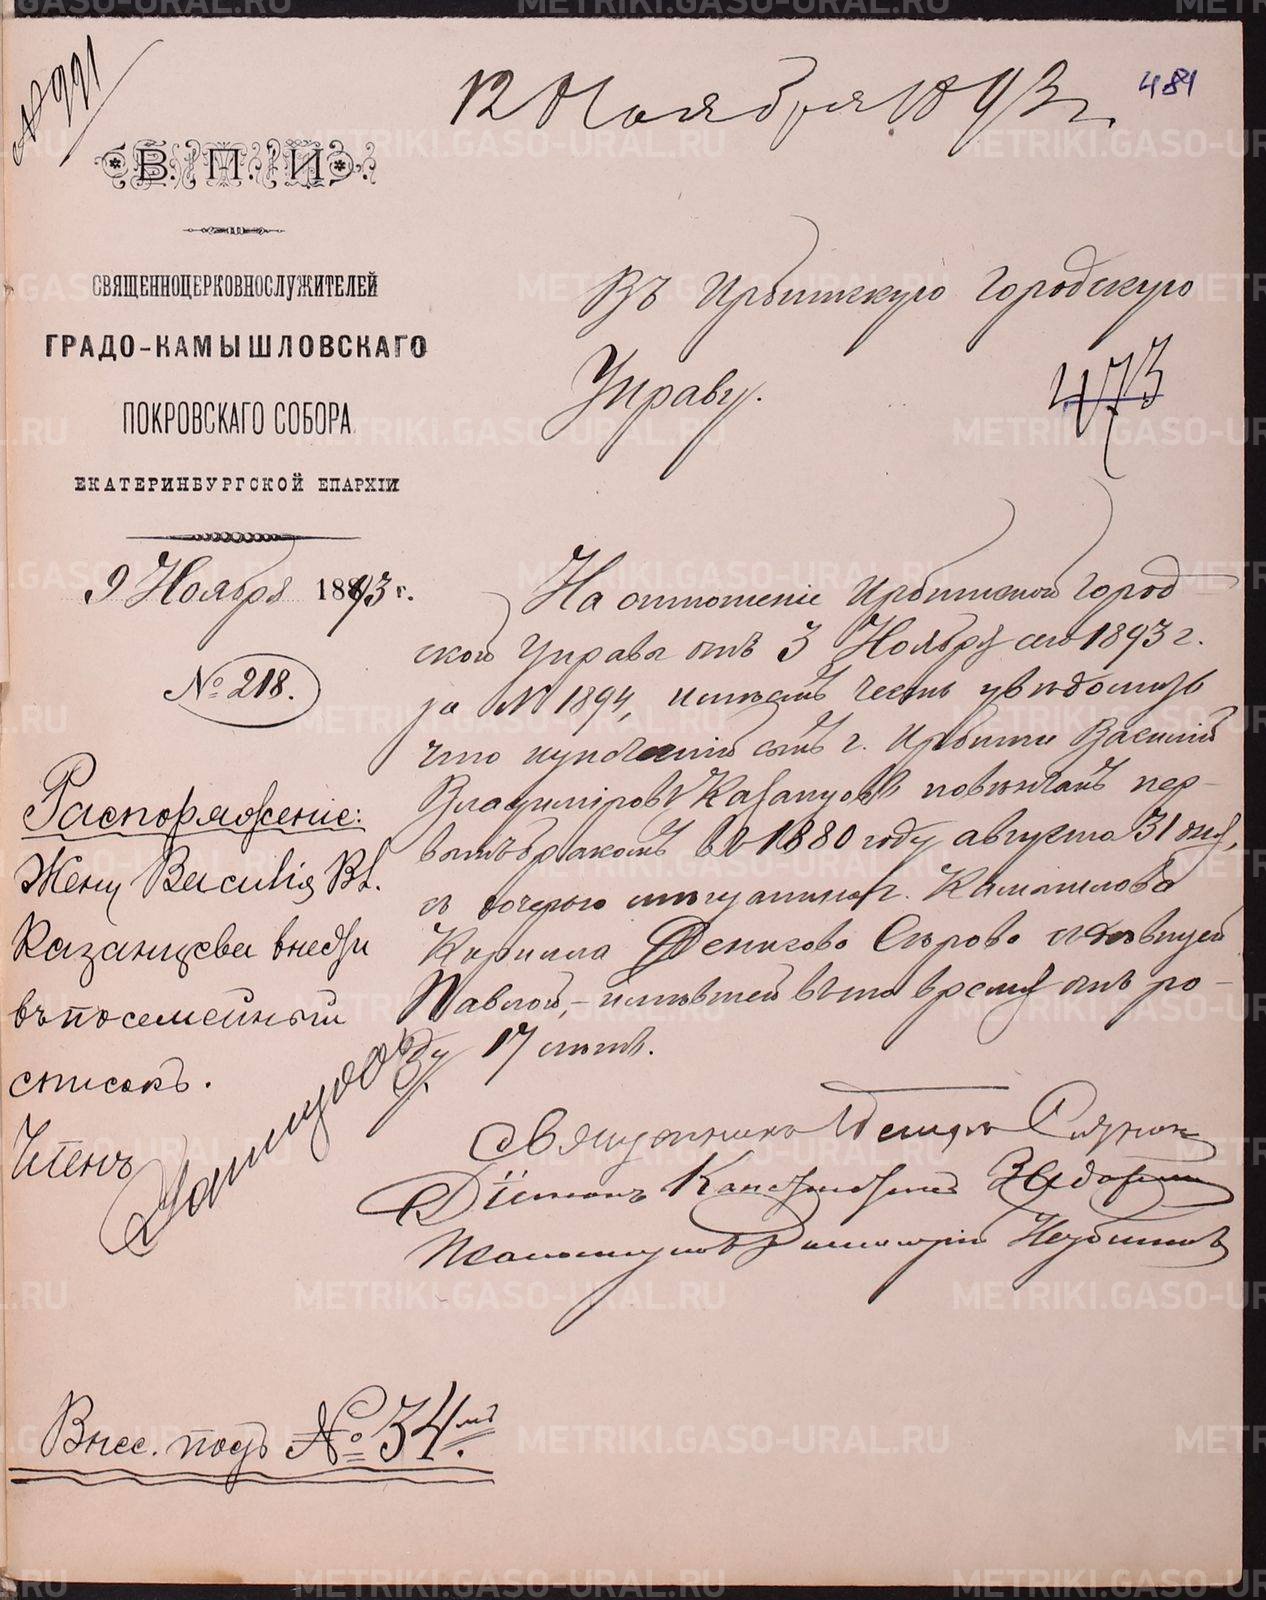 № 991
12 Ноября 1893 г.
481
В. П. И.
СВЯЩЕННОЦЕРКОВНОСЛУЖИТЕЛЕЙ
ГРАДО-КАМЫШЛОВСКАГО
ПОКРОВСКАГО СОБОРА
ЕКАТЕРИНБУРГСКОЙ ЕПАРХІИ
9 Ноября 1893 г.
№ 218.
Въ Ирбитскую Городскую
Управу.
473
На отношеніе Ирбитской Город
ской Управы отъ 3 Ноября сего 1893 г.
за № 1894, имѣемъ честь увѣдомить
что купеческій сынъ г. Ирбити Василій
Владиміровъ Казанцовъ повѣнчанъ пер-
вымъ бракомъ въ 1880 году августа 31 дня,
съ дочерью мѣщанина г. Камышлова
Кирилла Денисова Сѣрова дѣвицей
Павлой, - имѣвшей въ то время отъ ро-
ду 17 лѣтъ.
Священникъ
Діаконъ
Псаломщикъ
Распоряженіе:
Жену Василія Вл.
Казанцева внести
въ посемейный
списокъ.
Членъ
Внес. подъ № 34мъ.
METRIKI.GASO-URAL.RU